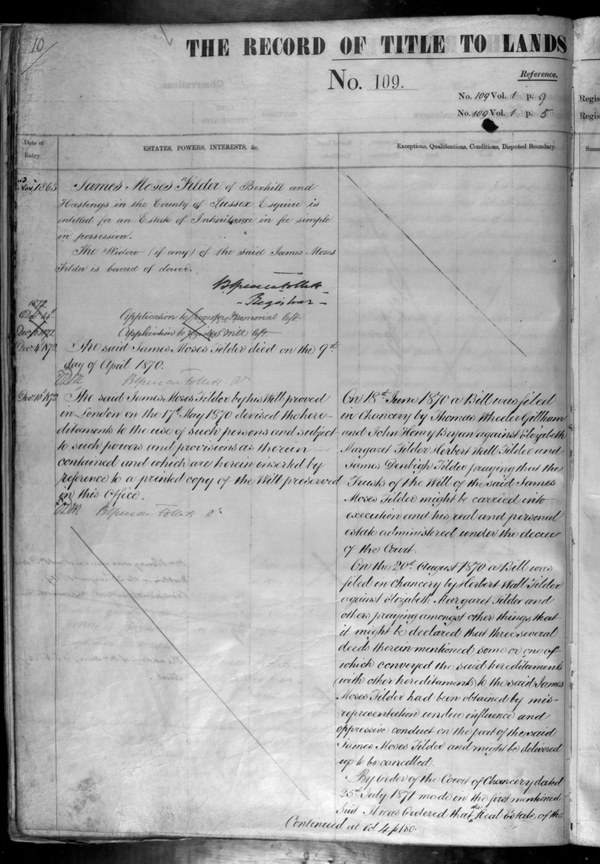 10
THE RECORD OF TITLE TO LANDS
No. 109.
Reference.
No. 109 Vol. 1 p. 9
No. 109 Vol. 1 p. 5
Date of
Entry.
ESTATES, POWERS, INTERESTS, &c.
Exceptions, Qualifications, Conditions, Disputed Boundary
1865
James Moses Tilder of Bexhill and
Hastings in the County of Sussex Esquire is
entitled for an Estate of Inheritance in fee simple
in possession.
The Widow (if any) of the said James Moses
Tilder is barred of dower.
Registrar
1872
Application to Memorial left
Application to Will left
Decr 4th 1872
The said James Moses Tilder died on the 9th
day of April 1870.
The said James Moses Tilder by his Will proved
in London on the 17th May 1870 devised the here-
ditaments to the use of such persons and subject
to such powers and provisions as therein
contained and which are herein inserted by
reference to a printed copy of the Will preserved
in this Office.
On 18th June 1870 a Bill was filed
in Chancery by Thomas Wheeler Gillham
and John Henry Bryan against Elizabeth
Margaret Tilder Herbert Wall Tilder and
James Denbigh Tilder praying that the
Trusts of the Will of the said James
Moses Tilder might be carried into
execution and his real and personal
estate administered under the decree
of the Court.
On the 20th August 1870 a Bill was
filed in Chancery by Herbert Wall Tilder
against Elizabeth Margaret Tilder and
others praying amongst other things that
it might be declared that three several
deeds therein mentioned some or one of
which conveyed the said hereditaments
(with other hereditaments) to the said James
Moses Tilder had been obtained by mis-
representation undue influence and
oppressive conduct on the part of the said
James Moses Tilder and might be delivered
up to be cancelled.
By order of the Court of Chancery dated
25th July 1871 made in the first mentioned
Suit It was ordered that the Real Estate of the
Continued at Vol 4 p 180